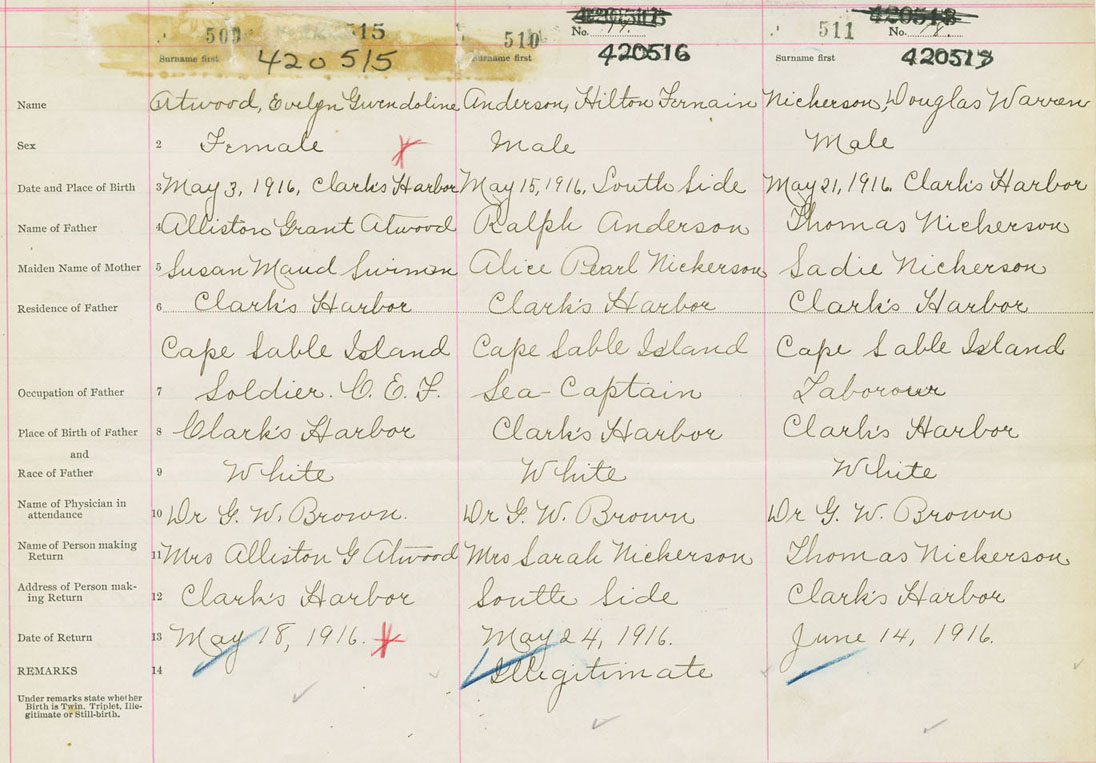 509 15 510 No. 511 No.
Surname first 420515 Surname first 420516 Surname first
Name Atwood, Evelyn Gwendoline Anderson, Hilton Fernain Nickerson, Douglas Warren
Sex 2 Female Male Male
Date and Place of Birth 3 May 3, 1916, Clark's Harbor May 15, 1916, South Side May 21, 1916. Clark's Harbor
Name of Father 4 Alliston Grant Atwood Ralph Anderson Thomas Nickerson
Maiden Name of Mother 5 Susan Maud Alice Pearl Nickerson Sadie Nickerson
Residence of Father 6 Clark's Harbor Clark's Harbor Clark's Harbor
Cape Sable Island Cape Sable Island Cape Sable Island
Occupation of Father 7 Soldier. C. E. F. Sea-Captain Laborour
Place of Birth of Father 8 Clark's Harbor Clark's Harbor Clark's Harbor
and
Race of Father 9 White White White
Name of Physician in
attendance 10 Dr G. W. Brown. Dr G. W. Brown Dr G. W. Brown
Name of Person making
Return 11 Mrs Alliston G Atwood Mrs Sarah Nickerson Thomas Nickerson
Address of Person mak-
ing Return 12 Clark's Harbor South Side Clark's Harbor
Date of Return 13 May 18, 1916. May 24, 1916. June 14, 1916.
REMARKS 14 Illegitimate
Under remarks state whether
Birth is Twin, Triplet, Ille-
gitimate or Still-birth.